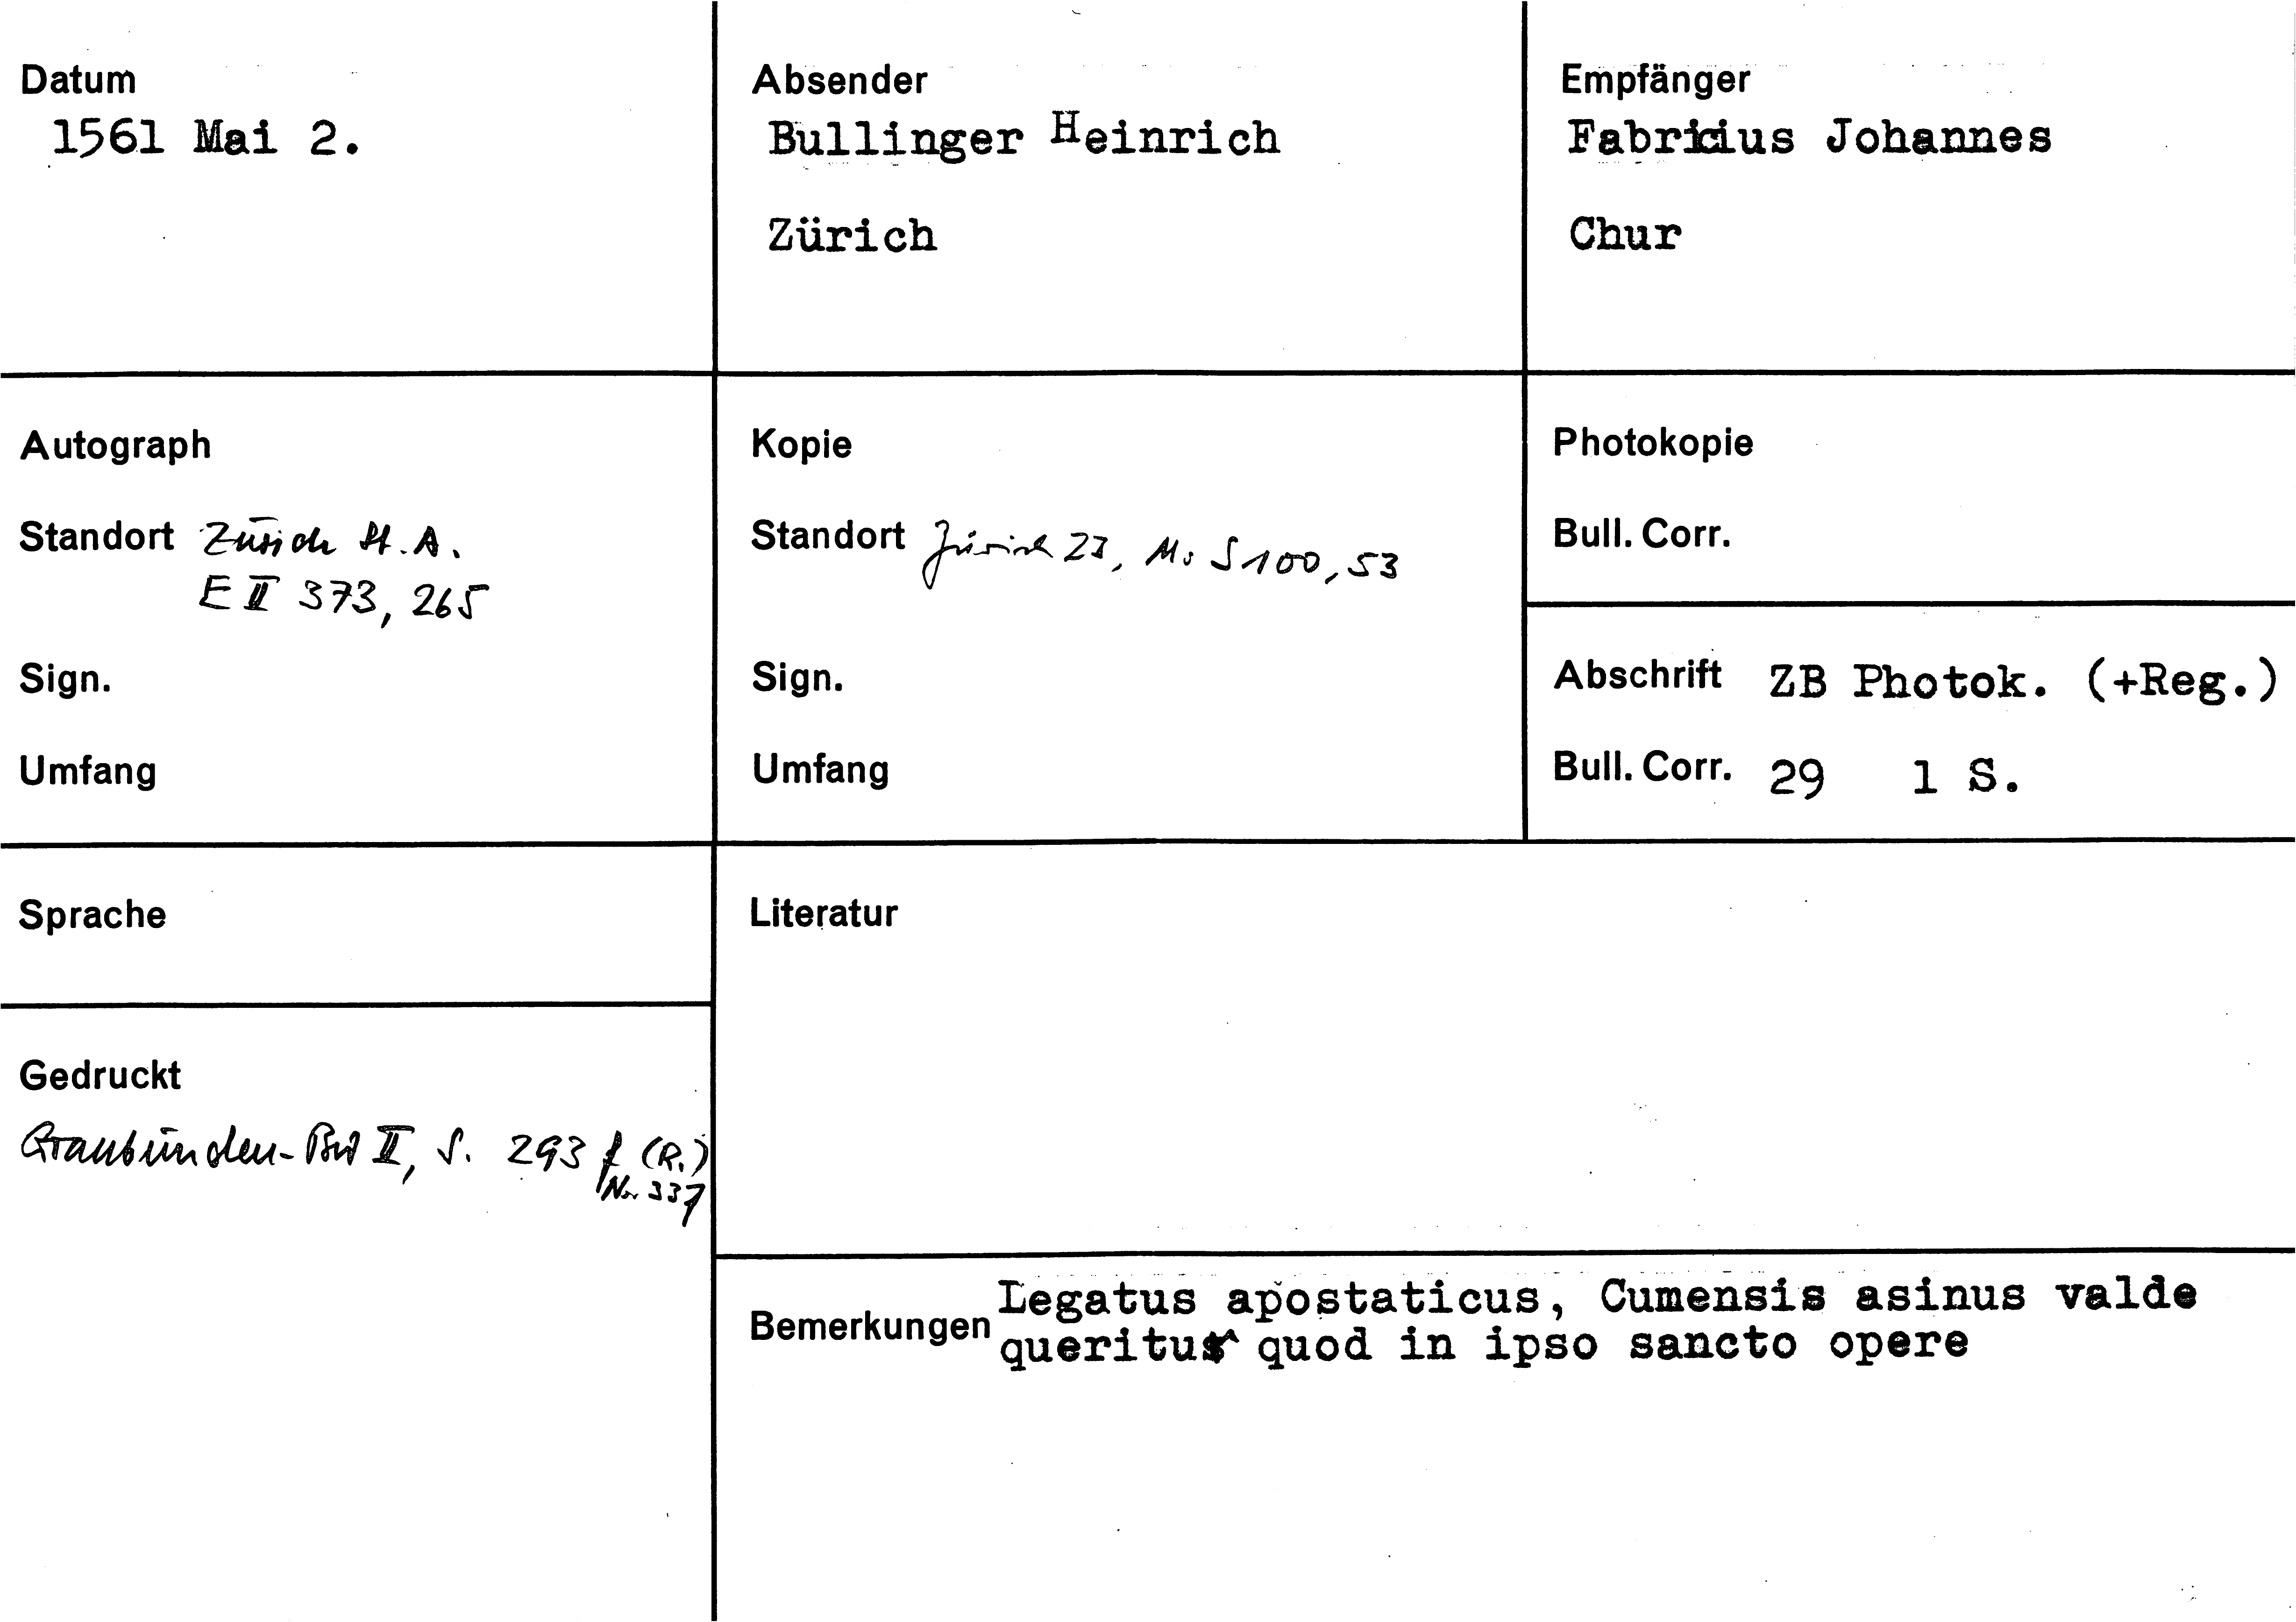 Datum
1561 Mai 2.
Absender
Bullinger Heinrich
Zürich
Empfänger
Fabricius Johannes
Chur
Autograph
Standort Zürich St.A.
E II 373, 265
Sign.
Umfang
Kopie
Standort Zürich ZB, Ms S 100, 53
Sign.
Umfang
Photokopie
Bull. Corr.
Abschrift ZB Photok. (+Reg.)
Bull. Corr. 29 1 S.
Sprache
Literatur
Gedruckt
Graubünden-Bw II, S. 293 f (R.)
Nr. 337
Bemerkungen Legatus apostaticus, Cumensis asinus valde
queritur quod in ipso sancto opere